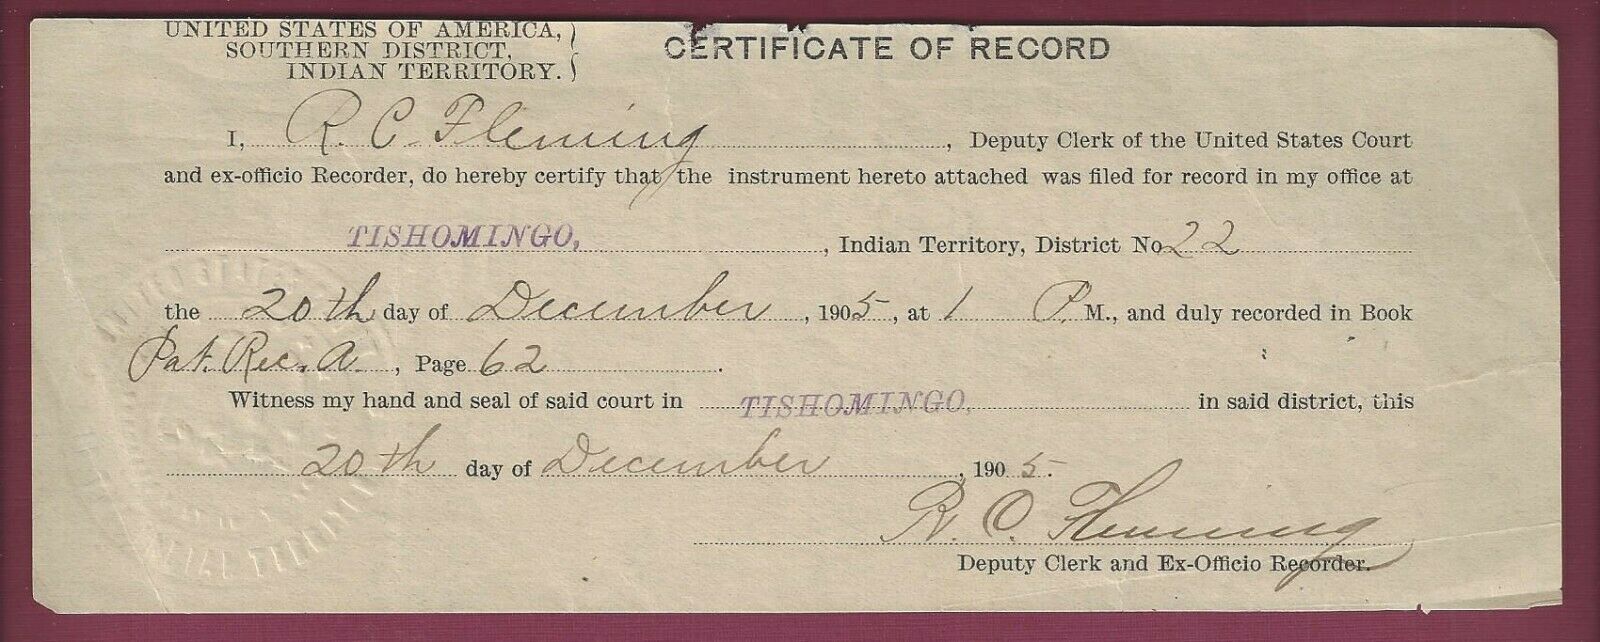 UNITED STATES OF AMERICA,
SOUTHERN DISTRICT,
INDIAN TERRITORY.
CERTIFICATE OF RECORD
I, R. C. Fleming, Deputy Clerk of the United States Court
and ex-officio Recorder, do hereby certify that the instrument hereto attached was filed for record in my office at
TISHOMINGO, , Indian Territory, District No 22
the 20th day of December, 1905, at 1 P. M., and duly recorded in Book
Pat. Rec. A, Page 62.
Witness my hand and seal of said court in TISHOMINGO, in said district, this
20th day of December, 1905.
R. C. Fleming
Deputy Clerk and Ex-Officio Recorder.